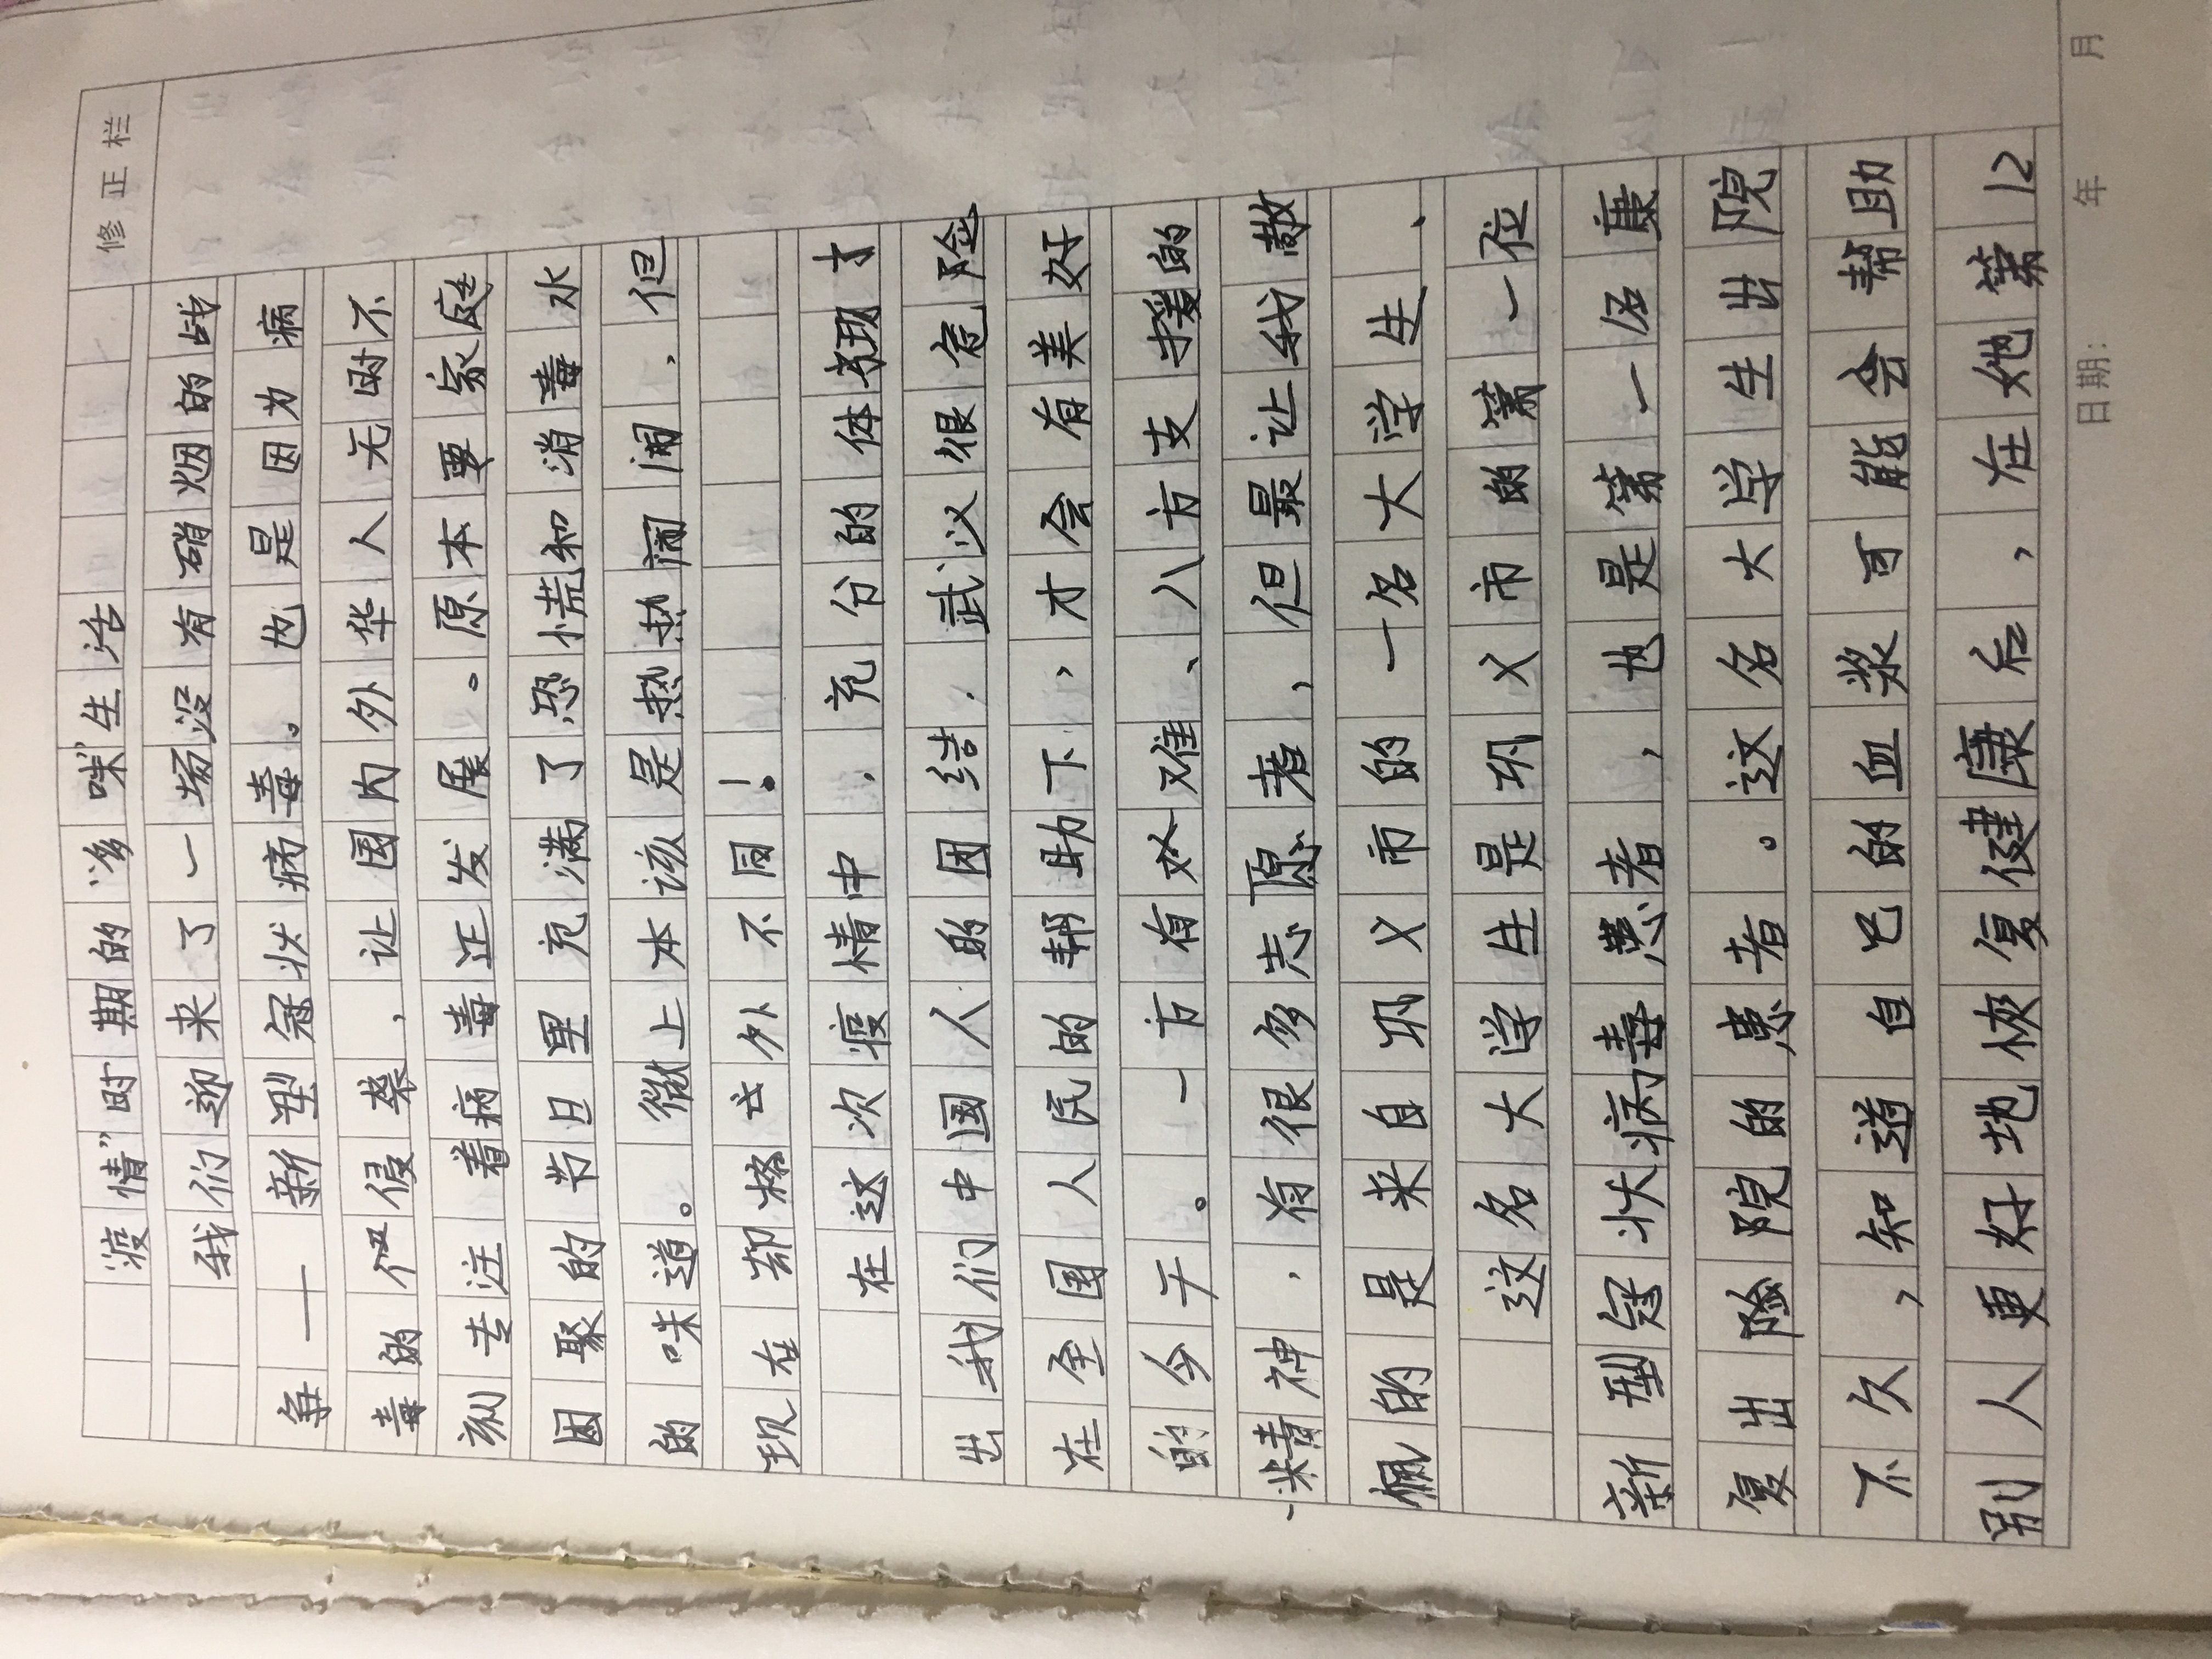 修正栏
“疫情”时期的“多味”生活
我们迎来了一场没有硝烟的战
争——新型冠状病毒。也是因为病
毒的侵袭,让国内外华人无时不
刻专注着病毒正发展。原本要家庭
团聚的节日里充满了恐慌和消毒水
的味道。街上本该是热热闹闹,但
现在却格外不同!
在这次疫情中,充分的体现才
出我们中国人的团结,武义很危险
在全国人民的帮助下,才会有美好
的今天。一方有难、八方支援的
精神,有很多志愿者,但最让我敬
佩的是来自巩义市的一名大学生、
这名大学生是巩义市的第一位
新型冠状病毒患者,也是第一名康
复出院的患者。这名大学生出院
不久,知道自己的血浆可能会帮助
别人更好地恢复健康后,在她第12
日期: 年 月